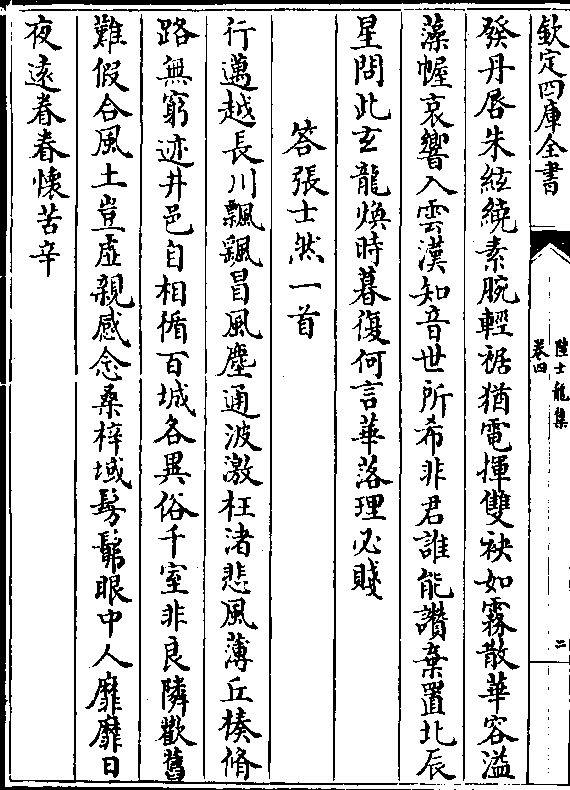 欽定四庫全書
陸士龍集
卷四
二
發丹脣朱絃繞素腕輕裾猶電揮雙袂如霧散華容溢
藻幄哀響入雲漢知音世所希非君誰能讚棄置北辰
星問此玄龍煥時暮復何言華落理必賤
答張士然一首
行邁越長川飄颻冒風塵通波激枉渚悲風薄丘榛脩
路無窮迹井邑自相循百城各異俗千室非良隣歡舊
難假合風土豈虛親感念桑梓域髣髴眼中人靡靡日
夜遠眷眷懷苦辛